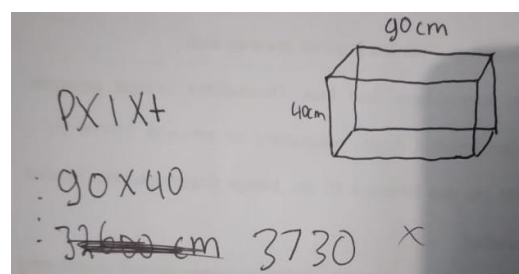 90cm
40cm
PXlXt
: 90X40
: 37600 cm 3730 X